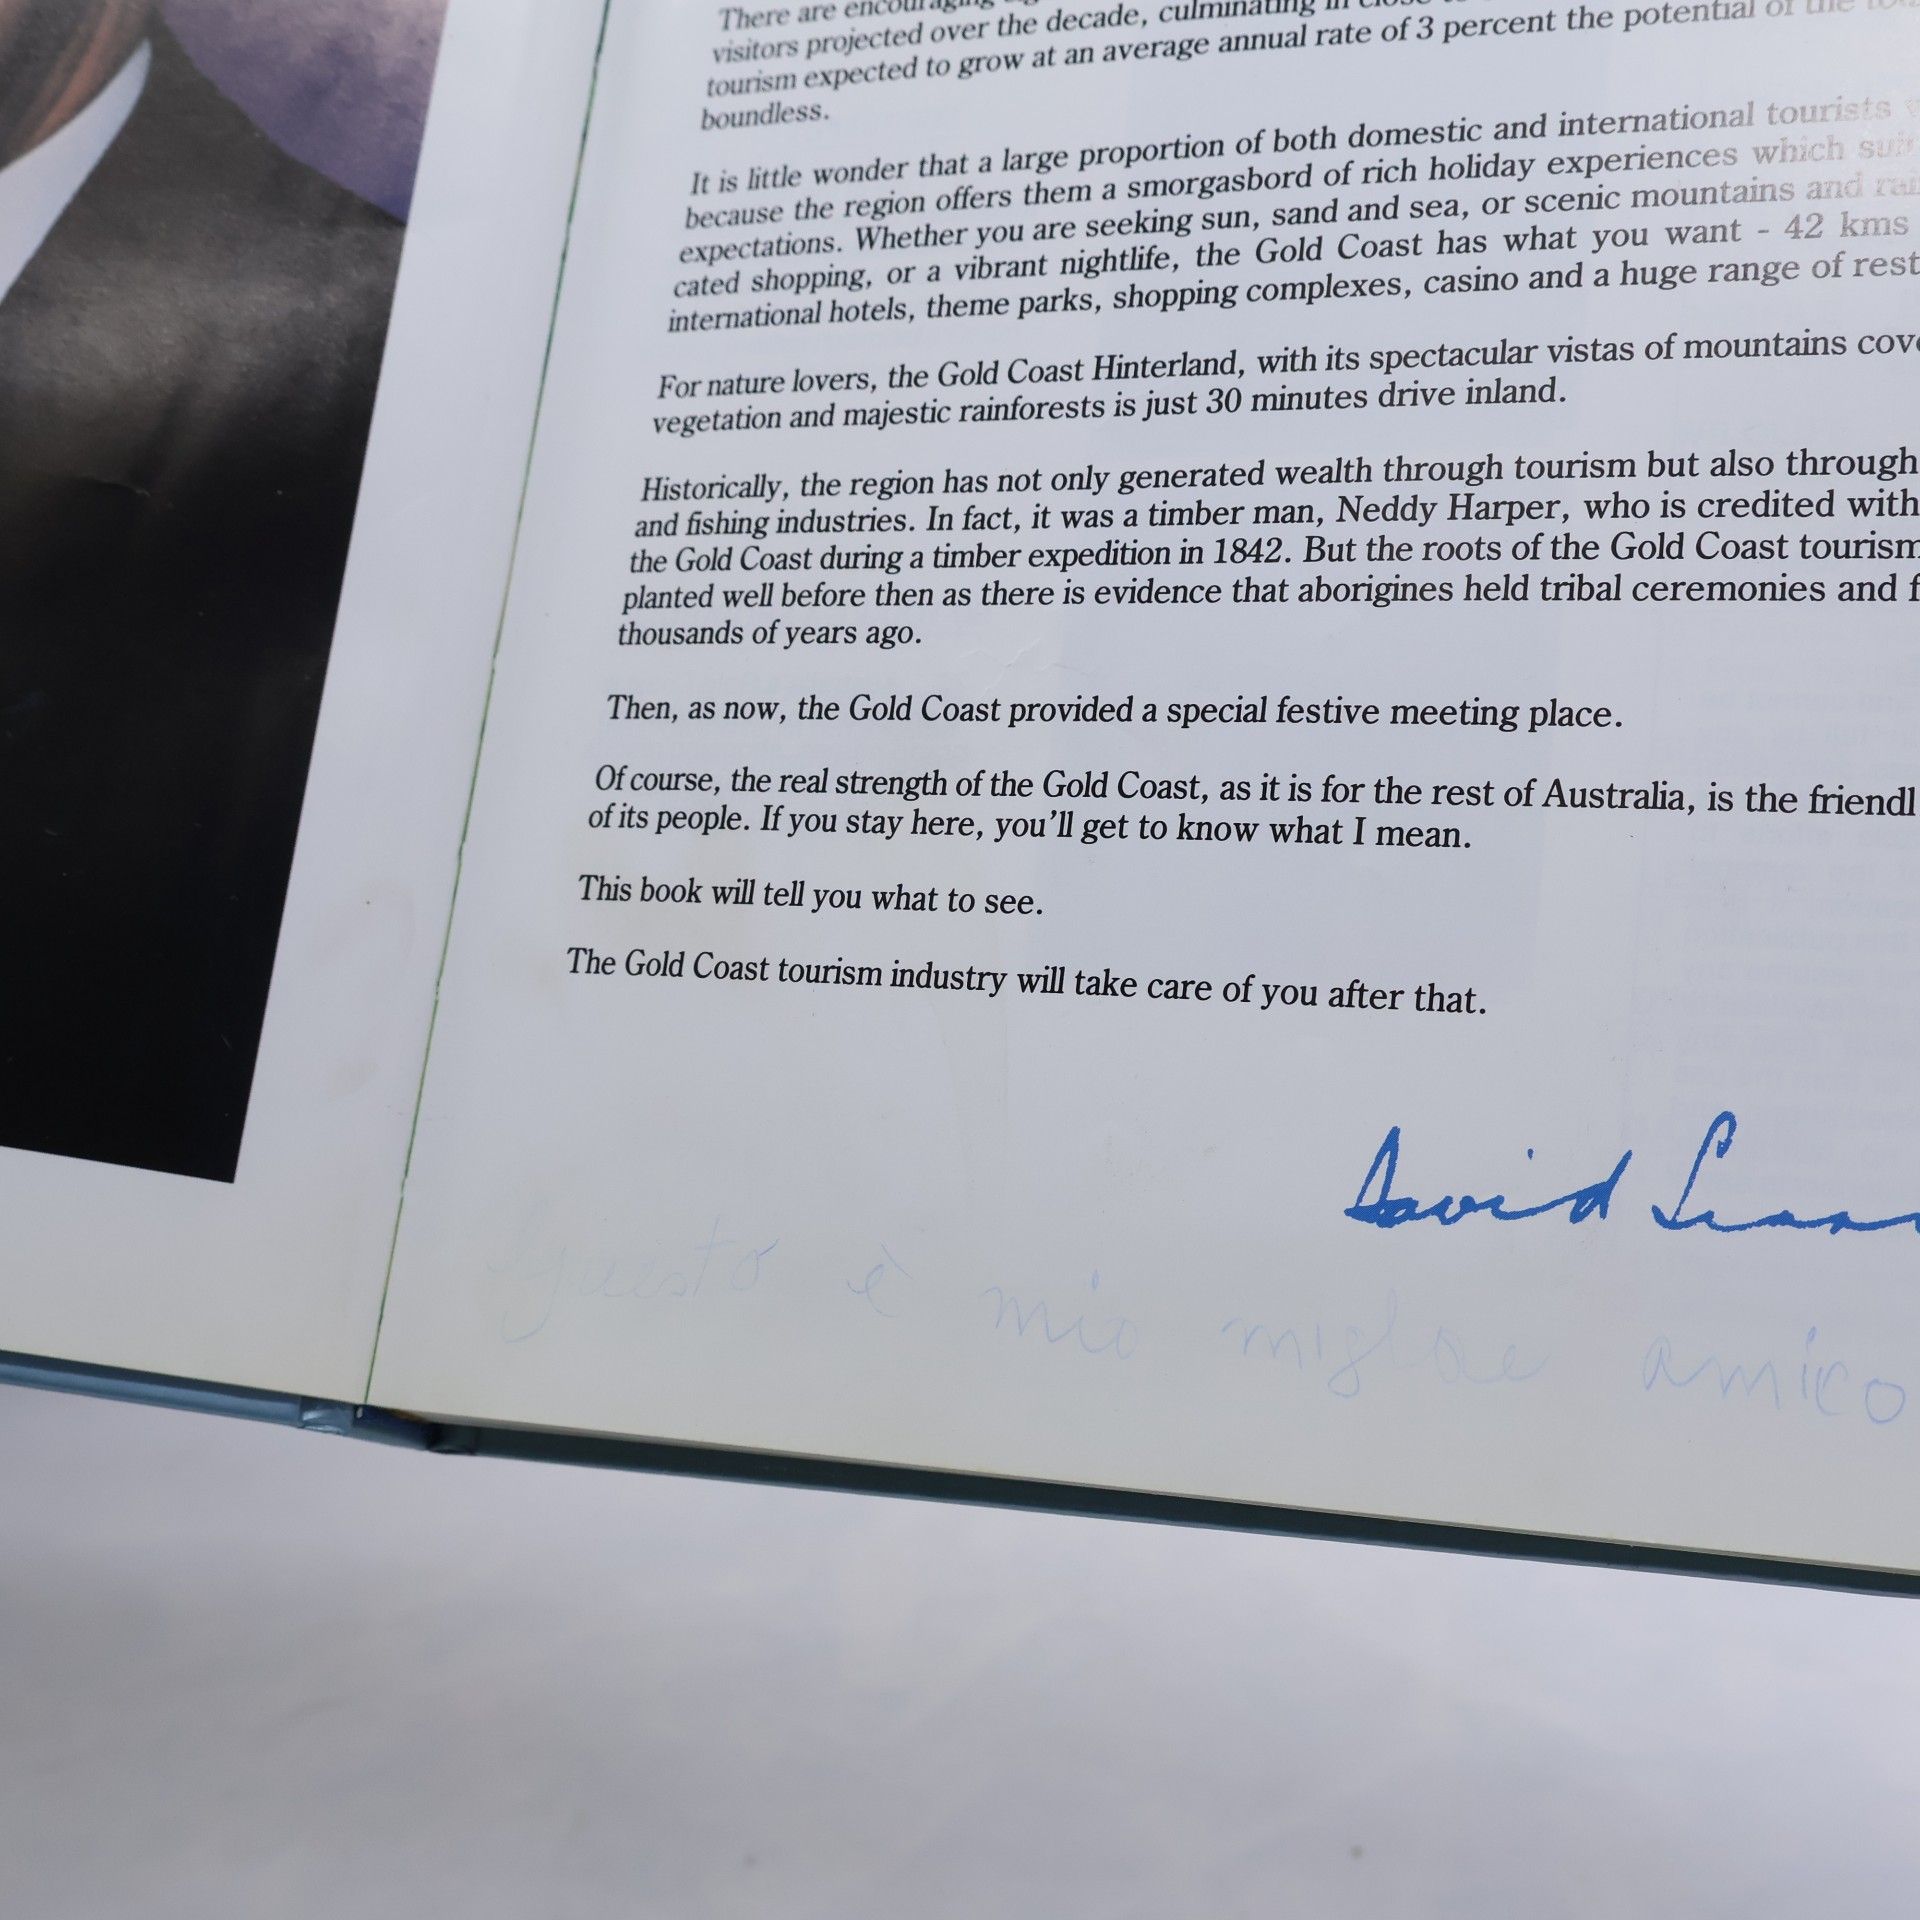 There are encouraging
visitors projected over the decade, culminating in close to
tourism expected to grow at an average annual rate of 3 percent the potential of the
boundless.
It is little wonder that a large proportion of both domestic and international tourists
because the region offers them a smorgasbord of rich holiday experiences which suit
expectations. Whether you are seeking sun, sand and sea, or scenic mountains and
cated shopping, or a vibrant nightlife, the Gold Coast has what you want - 42 kms
international hotels, theme parks, shopping complexes, casino and a huge range of rest
For nature lovers, the Gold Coast Hinterland, with its spectacular vistas of mountains cov
vegetation and majestic rainforests is just 30 minutes drive inland.
Historically, the region has not only generated wealth through tourism but also through
and fishing industries. In fact, it was a timber man, Neddy Harper, who is credited with
the Gold Coast during a timber expedition in 1842. But the roots of the Gold Coast tourism
planted well before then as there is evidence that aborigines held tribal ceremonies and f
thousands of years ago.
Then, as now, the Gold Coast provided a special festive meeting place.
Of course, the real strength of the Gold Coast, as it is for the rest of Australia, is the friendl
of its people. If you stay here, you'll get to know what I mean.
This book will tell you what to see.
The Gold Coast tourism industry will take care of you after that.
David
questo è mio amico